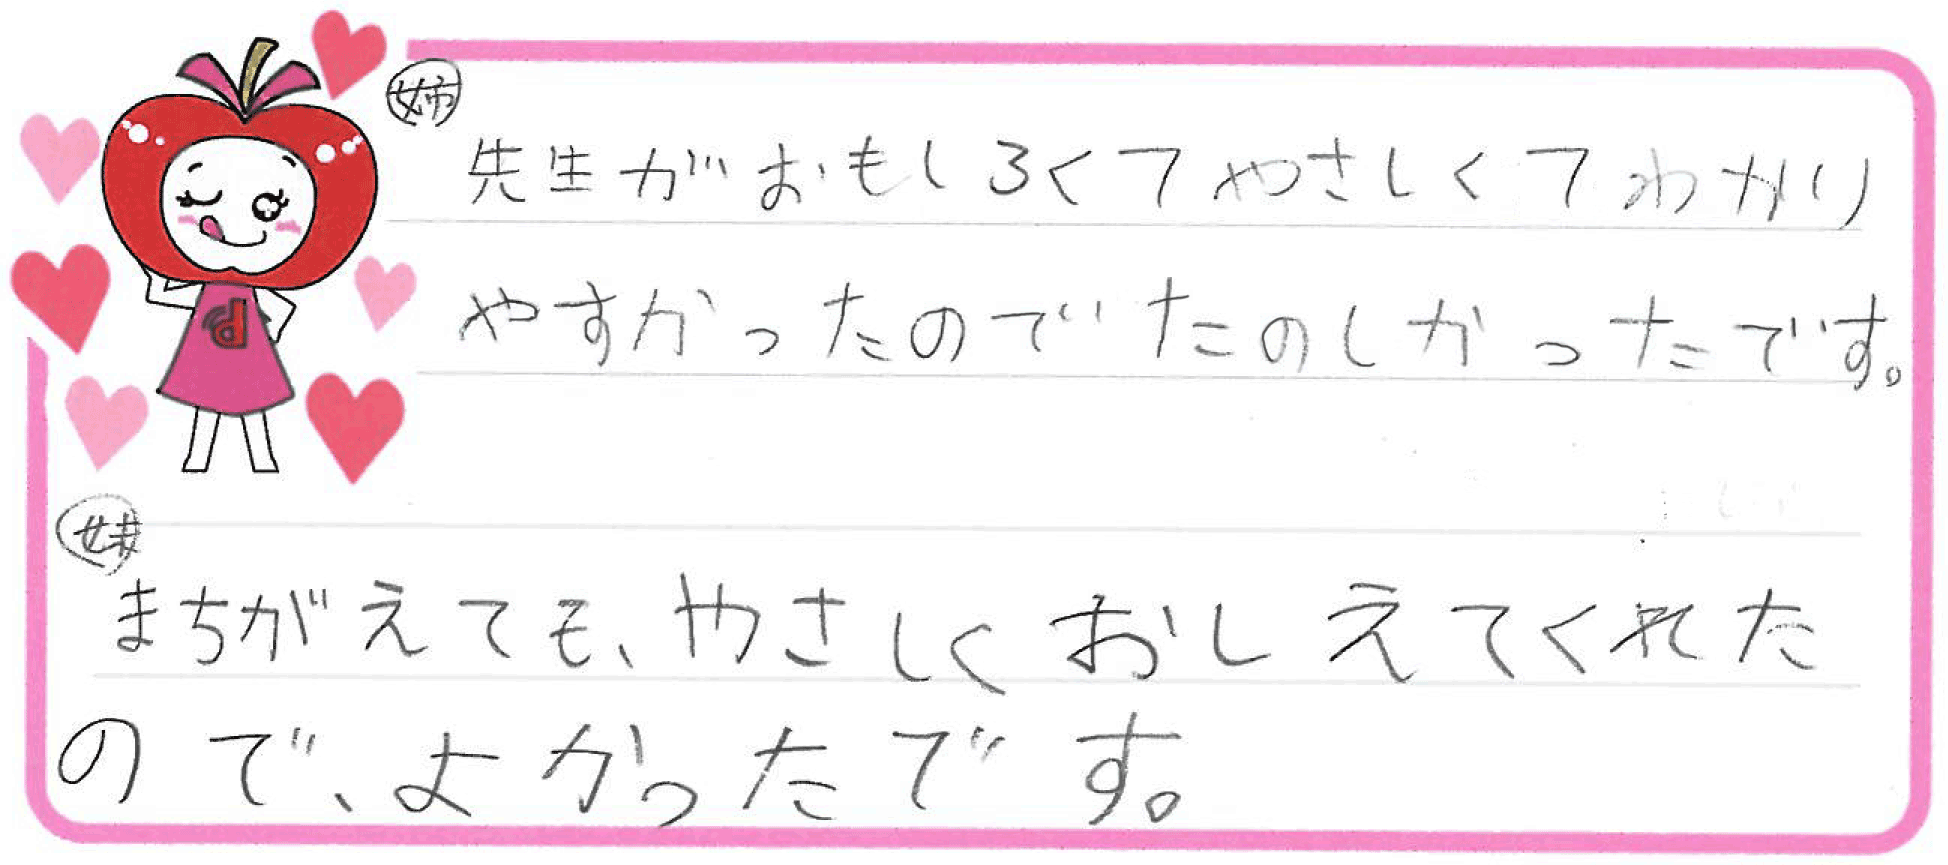 姉
先生がおもしろくてやさしくてわかり
やすかったのでたのしかったです。
妹
まちがえても、やさしくおしえてくれた
ので、よかったです。